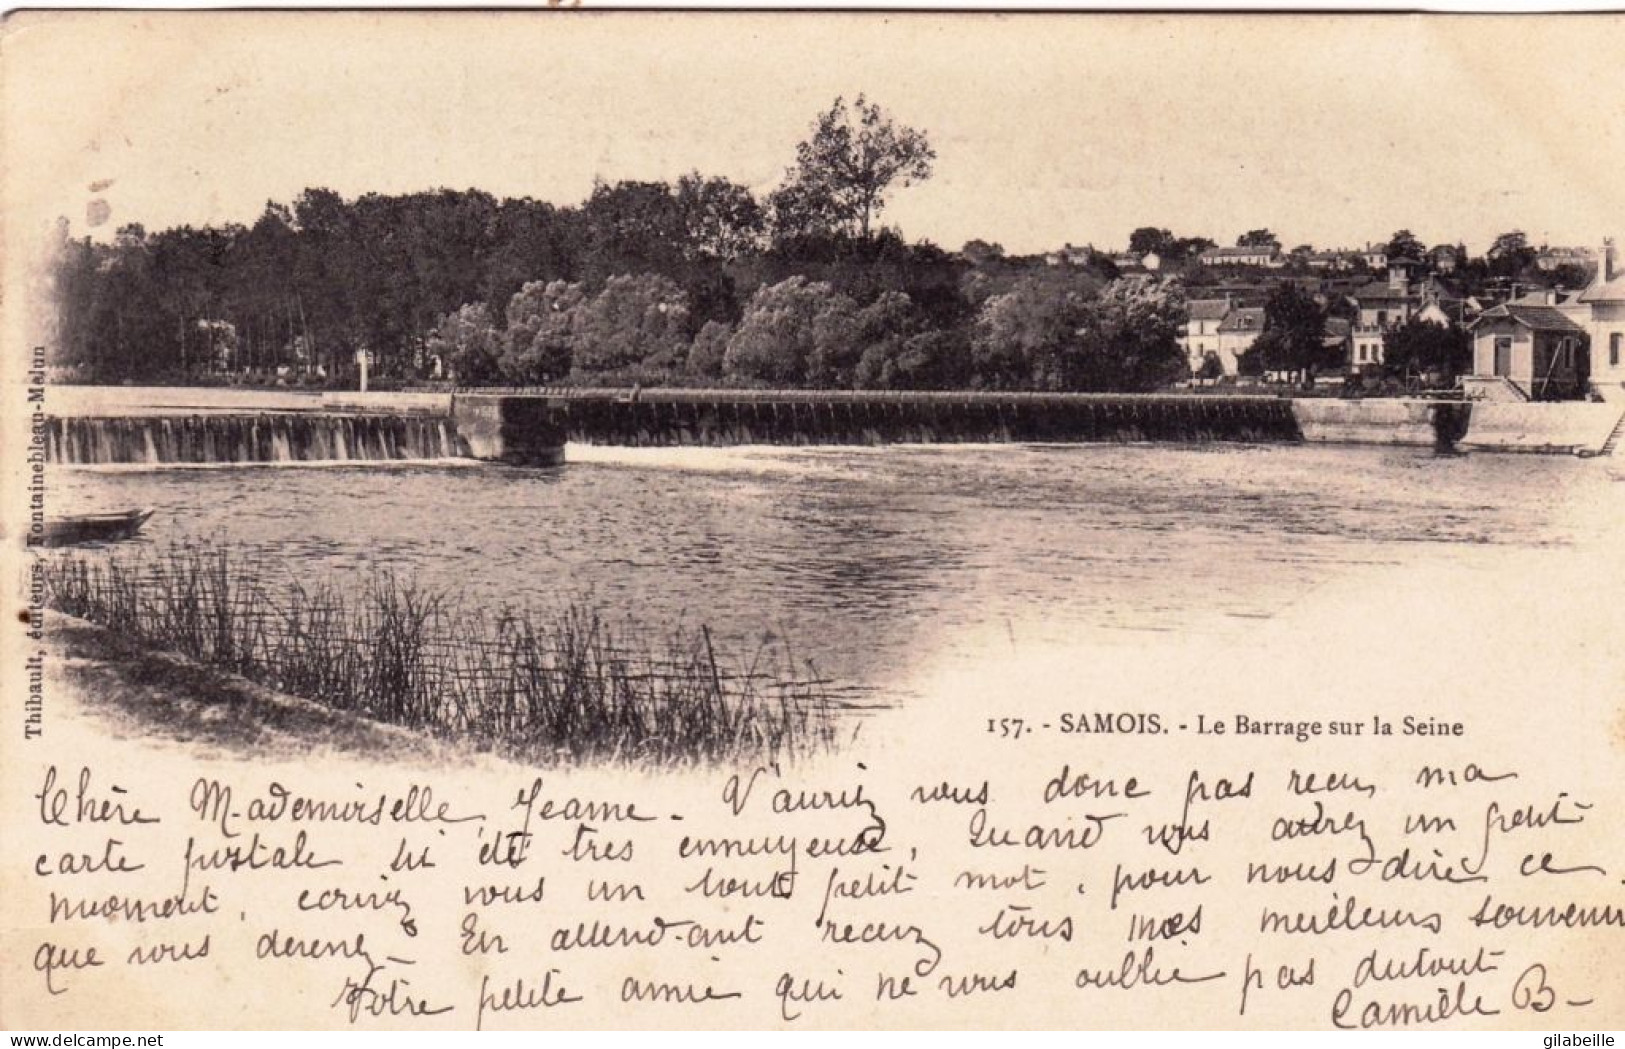 Thibault, éditeurs, Fontainebleau-Melun
157. - SAMOIS. - Le Barrage sur la Seine
Chère Mademoiselle Jeanne - N'auriez vous donc pas reçu ma
carte postale été très ennuyeuse, Quand vous aurez un petit
moment, ecrivez vous un tout petit mot, pour nous dire ce
que vous devenez - En attendant recevez tous mes meilleurs souvenirs
Votre petite amie qui ne vous oublie pas dutout
Camille B-
delcampe.net
gilabeille